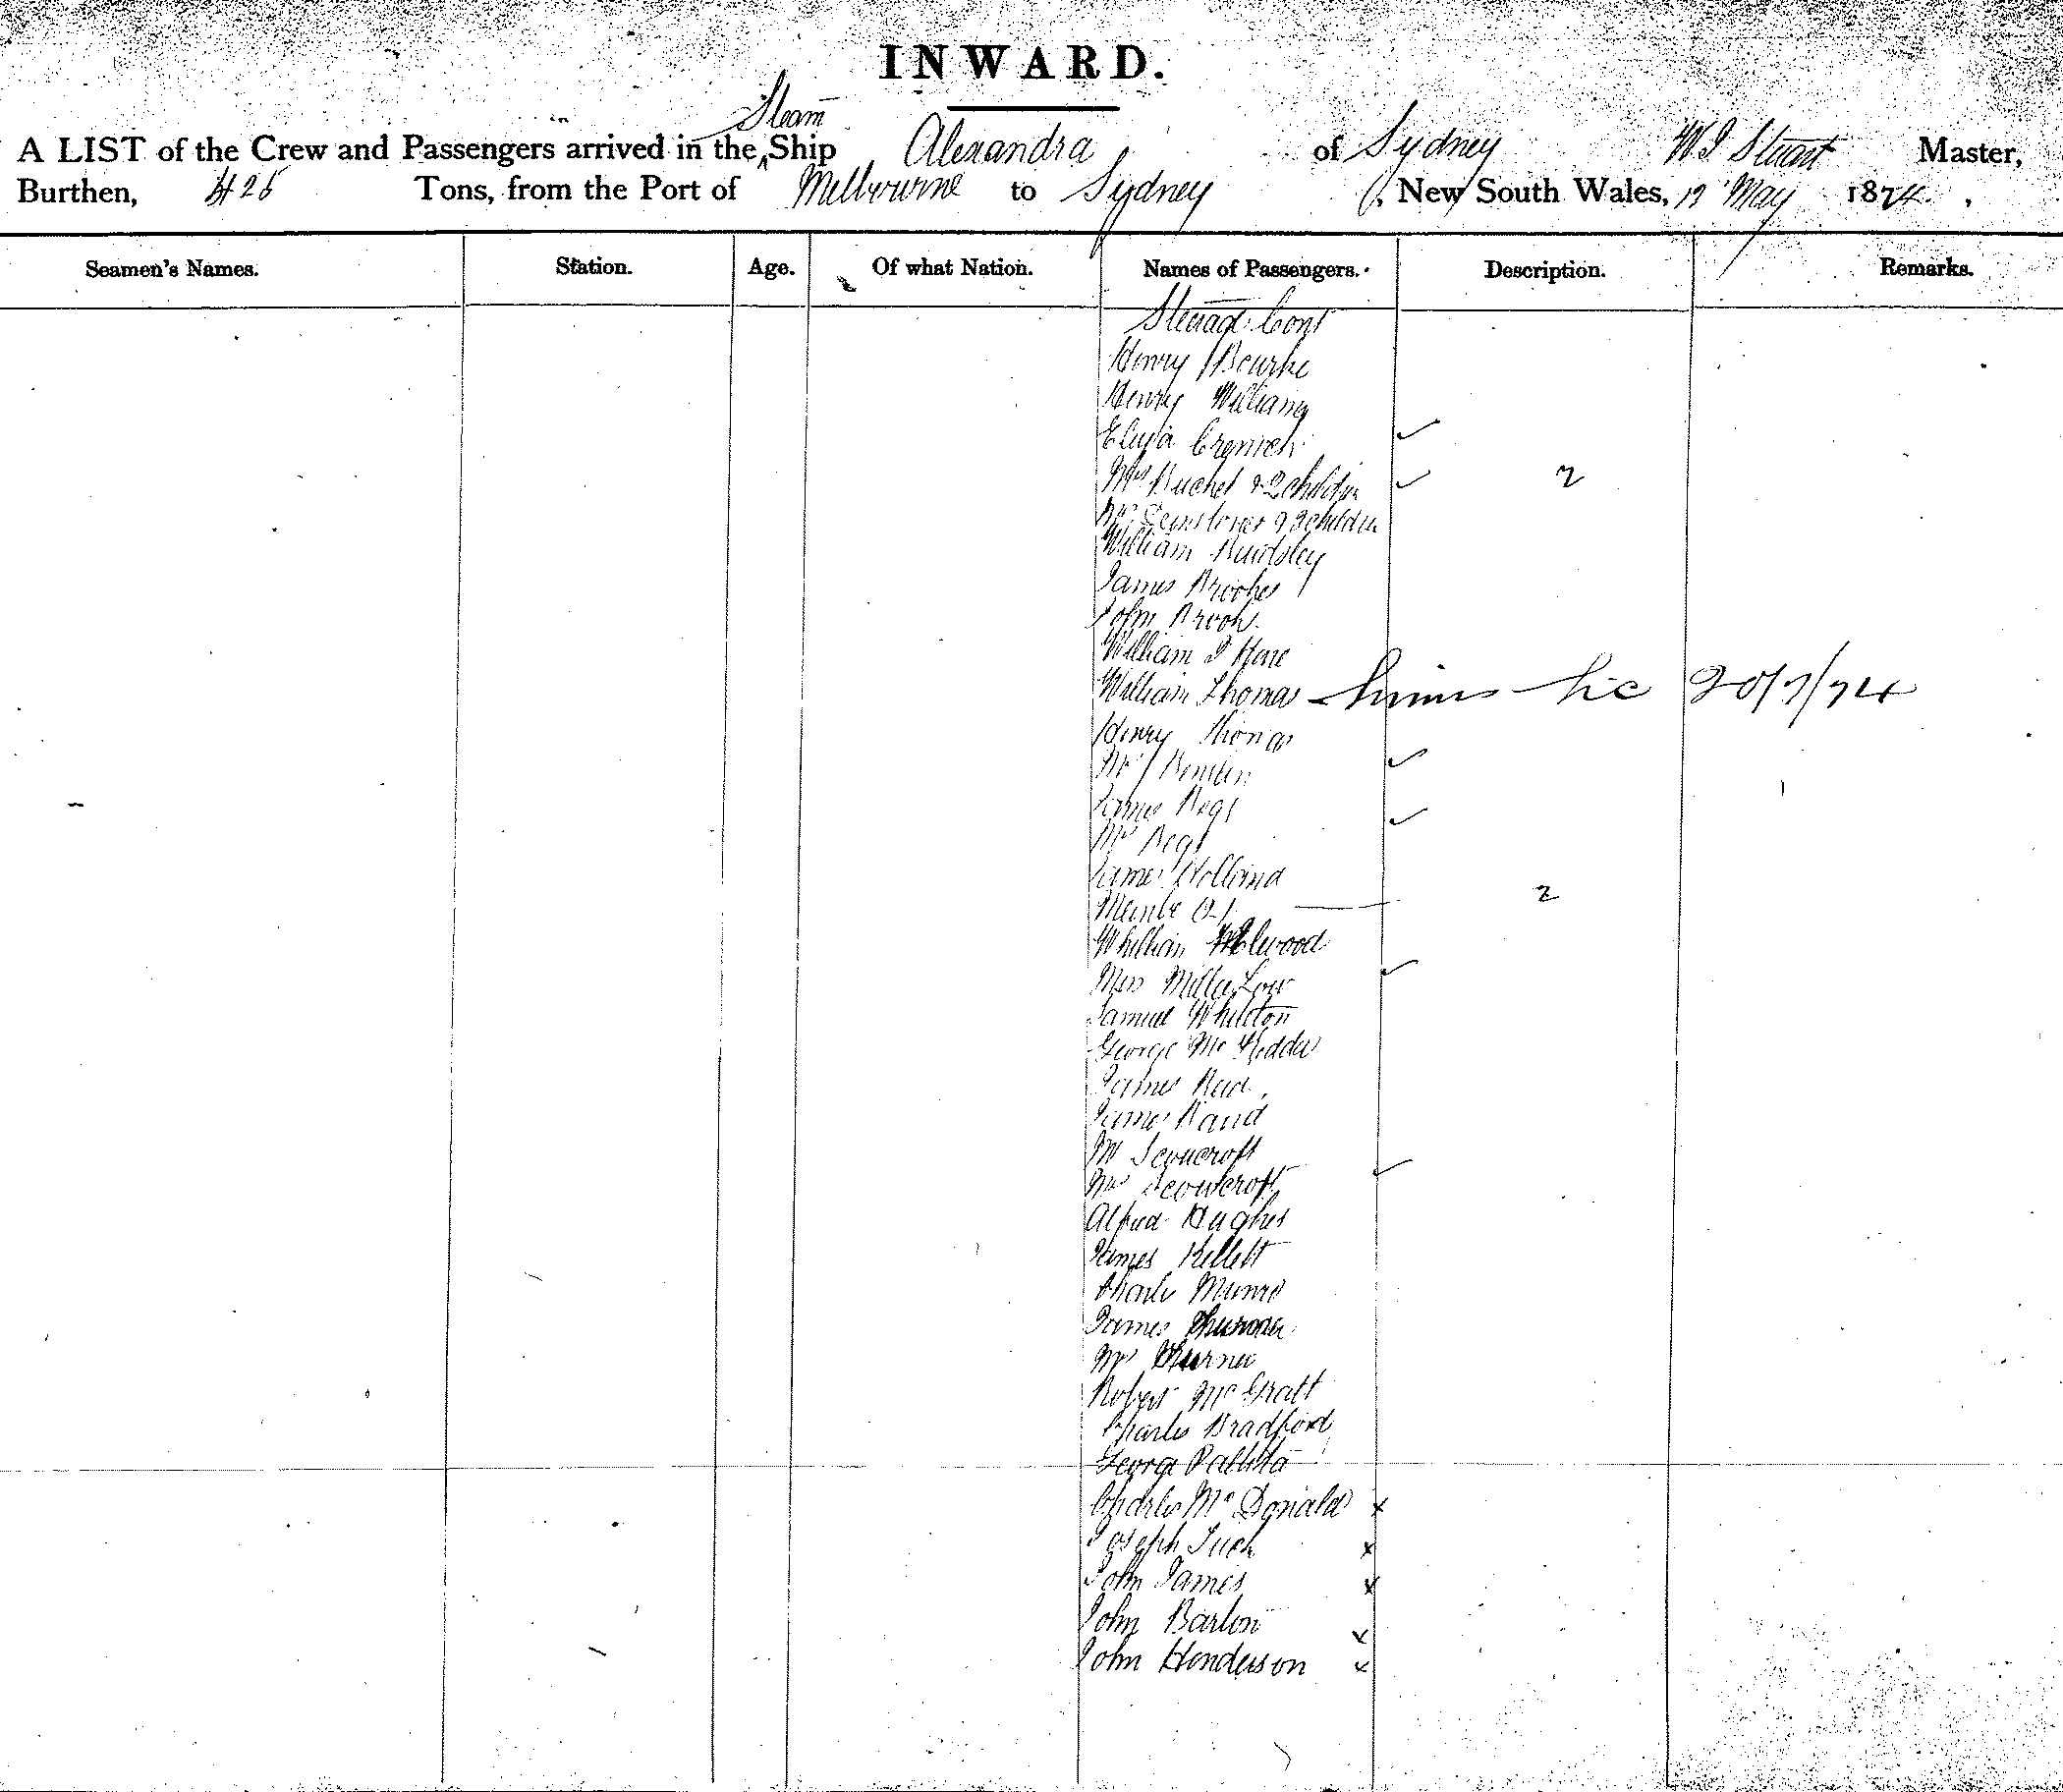 INWARD.
Steam
A LIST of the Crew and Passengers arrived in the ^ Ship Alexandra of Sydney W J Stuart Master,
Burthen, 425 Tons, from the Port of Melbourne to Sydney , New South Wales, 12 May 1874 ,
Seamen's Names. Station. Age. Of what Nation. Names of Passengers. Description. Remarks.
Steerage Cont
Henry Bourke
Henry Williams
Eliza ✓
Mrs & 2 children ✓ 2
& 3 children
William
James Brookes
John Brook
William J Hone
William Thomas 20/7/74
Henry Thomas
✓
James Begg
Mrs Begg ✓
James Holland
2
William Elwood
Miss Low ✓
Samuel Whitton
George Mc
James Reid
James Rand
Mr Scowcroft
Mrs Scowcroft ✓
Alfred Hughes
James Kellett
Charles Munro
James
Mrs
Robert McGratt
Charles Bradford
George
Charles McDonald x
Joseph Tuck x
John James x
John Barton x
John Henderson x